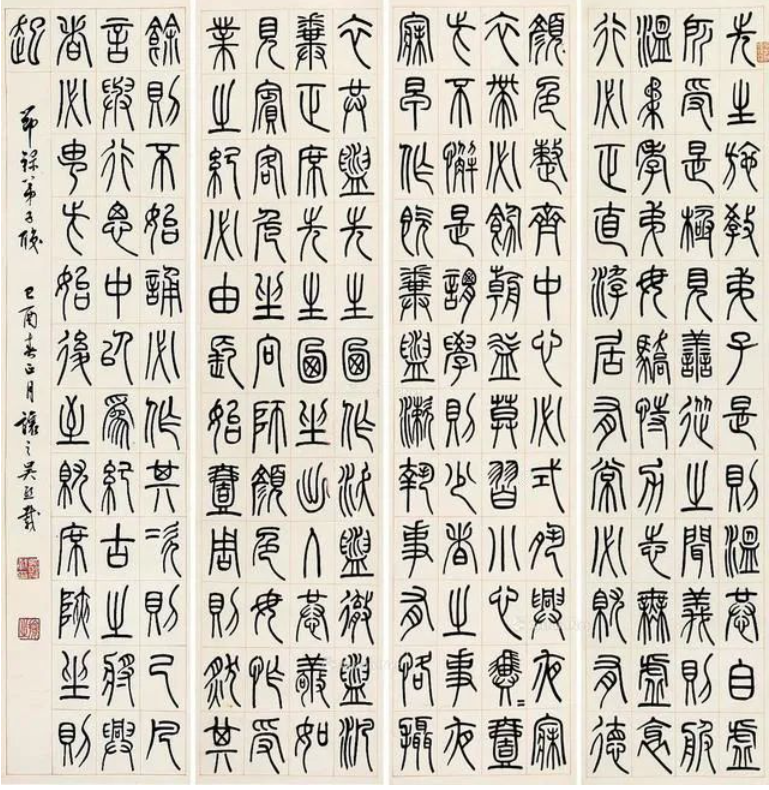 先生施教弟子是則溫恭自虛
所受是極見善從之聞義則服
溫柔孝弟毋驕恃力志無虛衺
行必正直游居有常必就有德
顏色整齊中心必式夙興夜寐
衣帶必飭朝益莫習小心翼〻壹
此不懈是謂學則少者之事夜
寐早作既糞盥漱執事有恪攝
衣共盥先生卥作沃盥徹盥汎
糞正席先生卥坐出入恭敬如
見賓客危坐向師顏色毋怍受
業之紀必由長始壹周則然其
餘則不始誦必作其次則已凡
言與行思中以為紀古之將興
者必由此始後至就席狹坐則
起
節錄弟子職 己酉春正月 讓之吳熙載